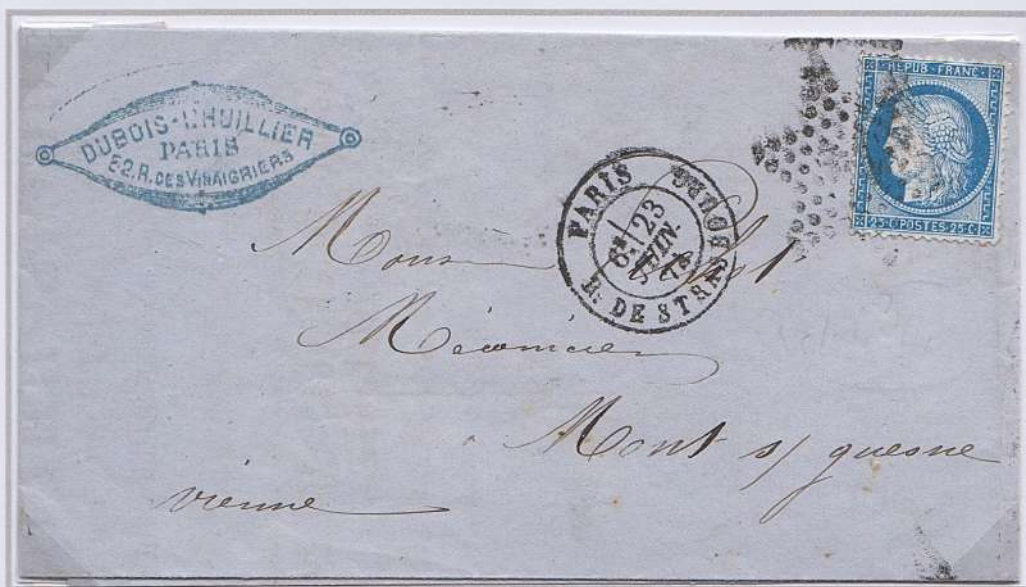 DUBOIS-LHUILLIER
PARIS
52.R.DES VINAIGRIERS
REPUB·FRANC·
25·C·POSTES·25·C
PARIS
6E 23
JUIN.
73
R. DE STRASBOURG
Monsieur
Mécanicien
Mont s/ guesne
vienne